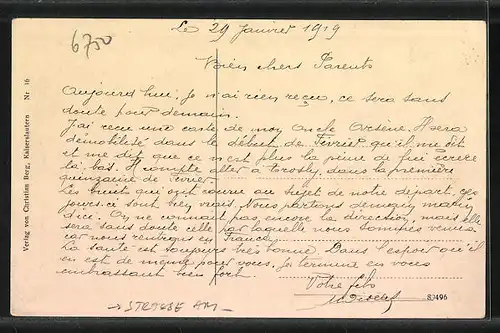 6750
Le 29 Janvier 1919
Bien chers Parents
Aujourd'hui, Je n'ai rien reçu, ce sera sans
doute pour demain.
J'ai recu une carte de mon oncle Arsène. Il sera
démobilisé dans le début de Fevrier qu'il me dit
et me dit que ce n'est plus la peine de lui ecrire
là-bas. Il compte aller à dans la première
quinzaine de Fevrier.
Les bruit qui ont couru au sujet de notre départ, ces
jours-ci sont bien vrais. Nous partons demain matin
d'ici. On ne connait pas encore la direction, mais elle
sera sans doute celle par laquelle nous sommes venus
car nous rentrons en France.
La santé est toujours très bonne. Dans l'espoir qu'il
en est de même pour vous, je termine en vous
embrassant bien fort.
Votre fils
83496
Verlag von Christian Berg, Kaiserslautern Nr 16